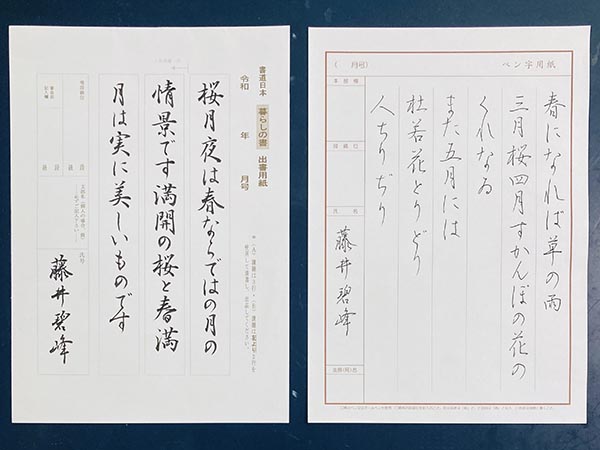 書道日本 暮らしの書 出書用紙
令和 年 月号
桜月夜は春ならではの月の
情景です満開の桜と春満
月は実に美しいものです
段級
段級
氏名
藤井碧峰
ペン字用紙
( 月号)
春になれば草の雨
三月桜四月すかんぽの花の
くれなゐ
また五月には
杜若花とりどり
人ちりぢり
段級位
氏名
藤井碧峰